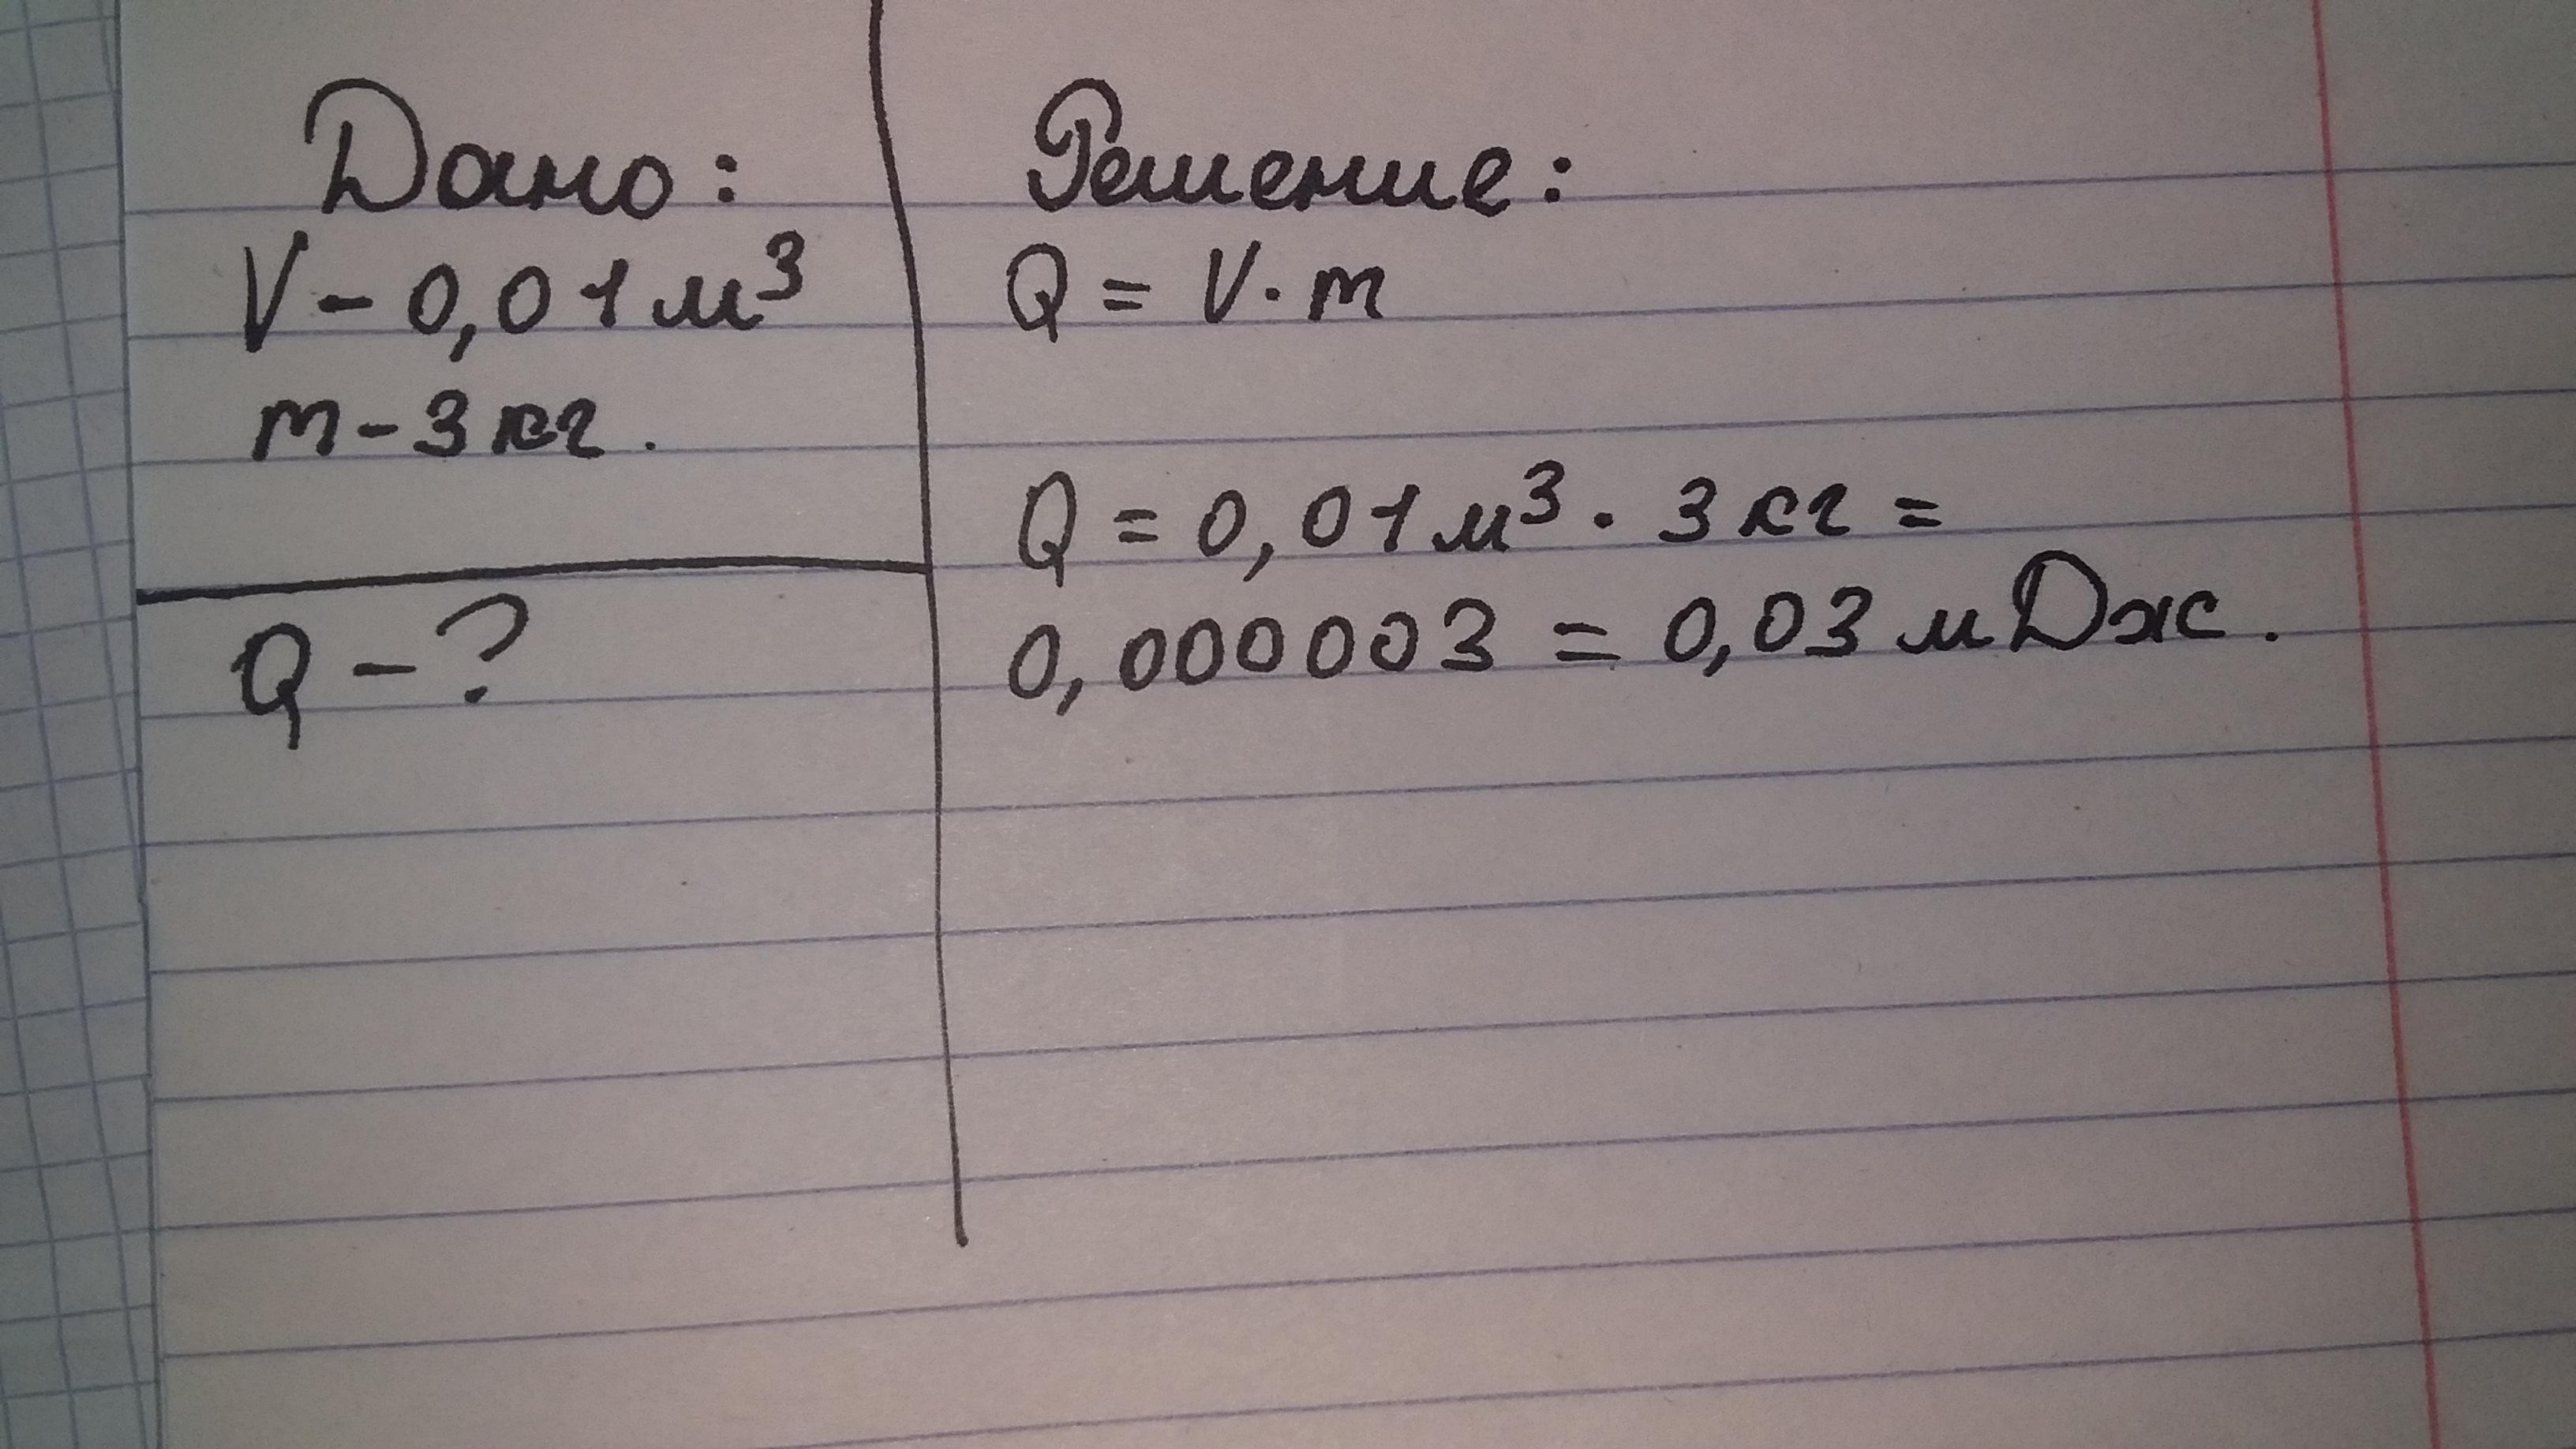 Дано:
V - 0,01 м³
m - 3 кг.
Q - ?
Решение:
Q = V · m
Q = 0,01 м³ · 3 кг =
0,000003 = 0,03 мДж.